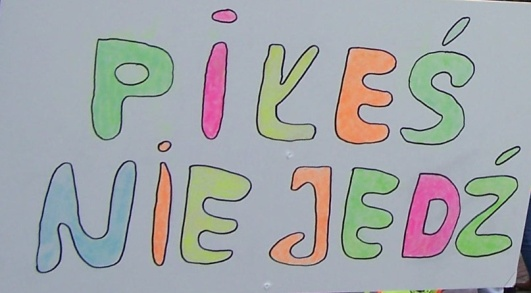 PIŁEŚ
NIE JEDŹ